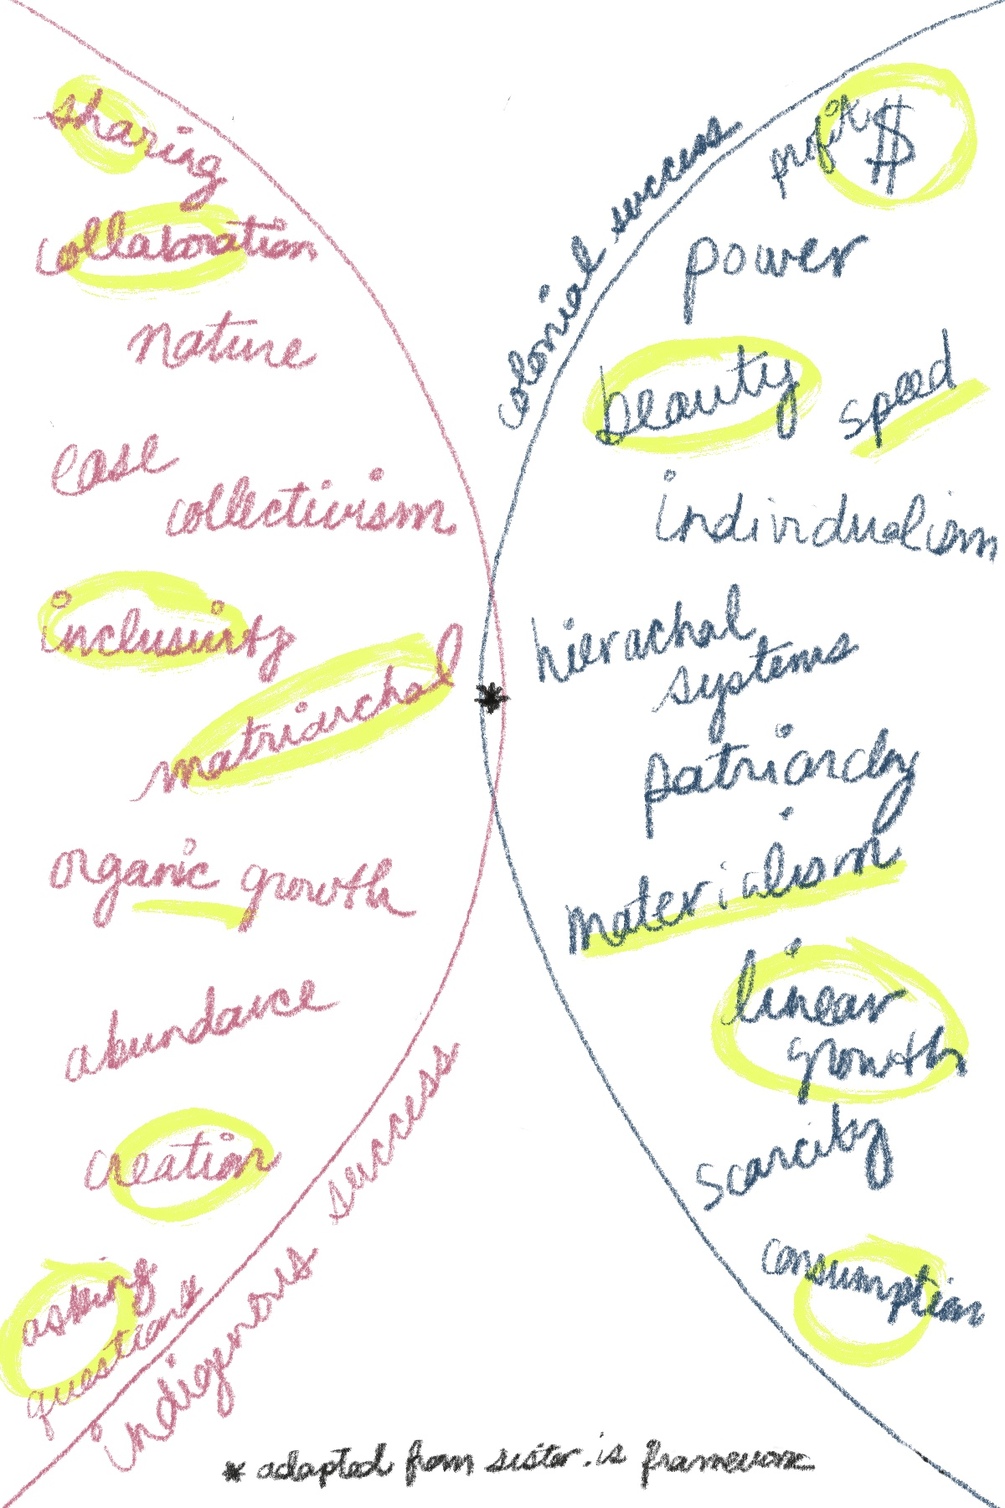 sharing
collaboration
nature
ease
collectivism
inclusivity
matriarchal
organic growth
abundance
creation
asking
questions
indigenous success
colonial success
profit $
power
beauty
speed
individualism
hierachal
systems
patriarchy
materialism
linear
growth
scarcity
consumption
*
* adapted from sister.is framework